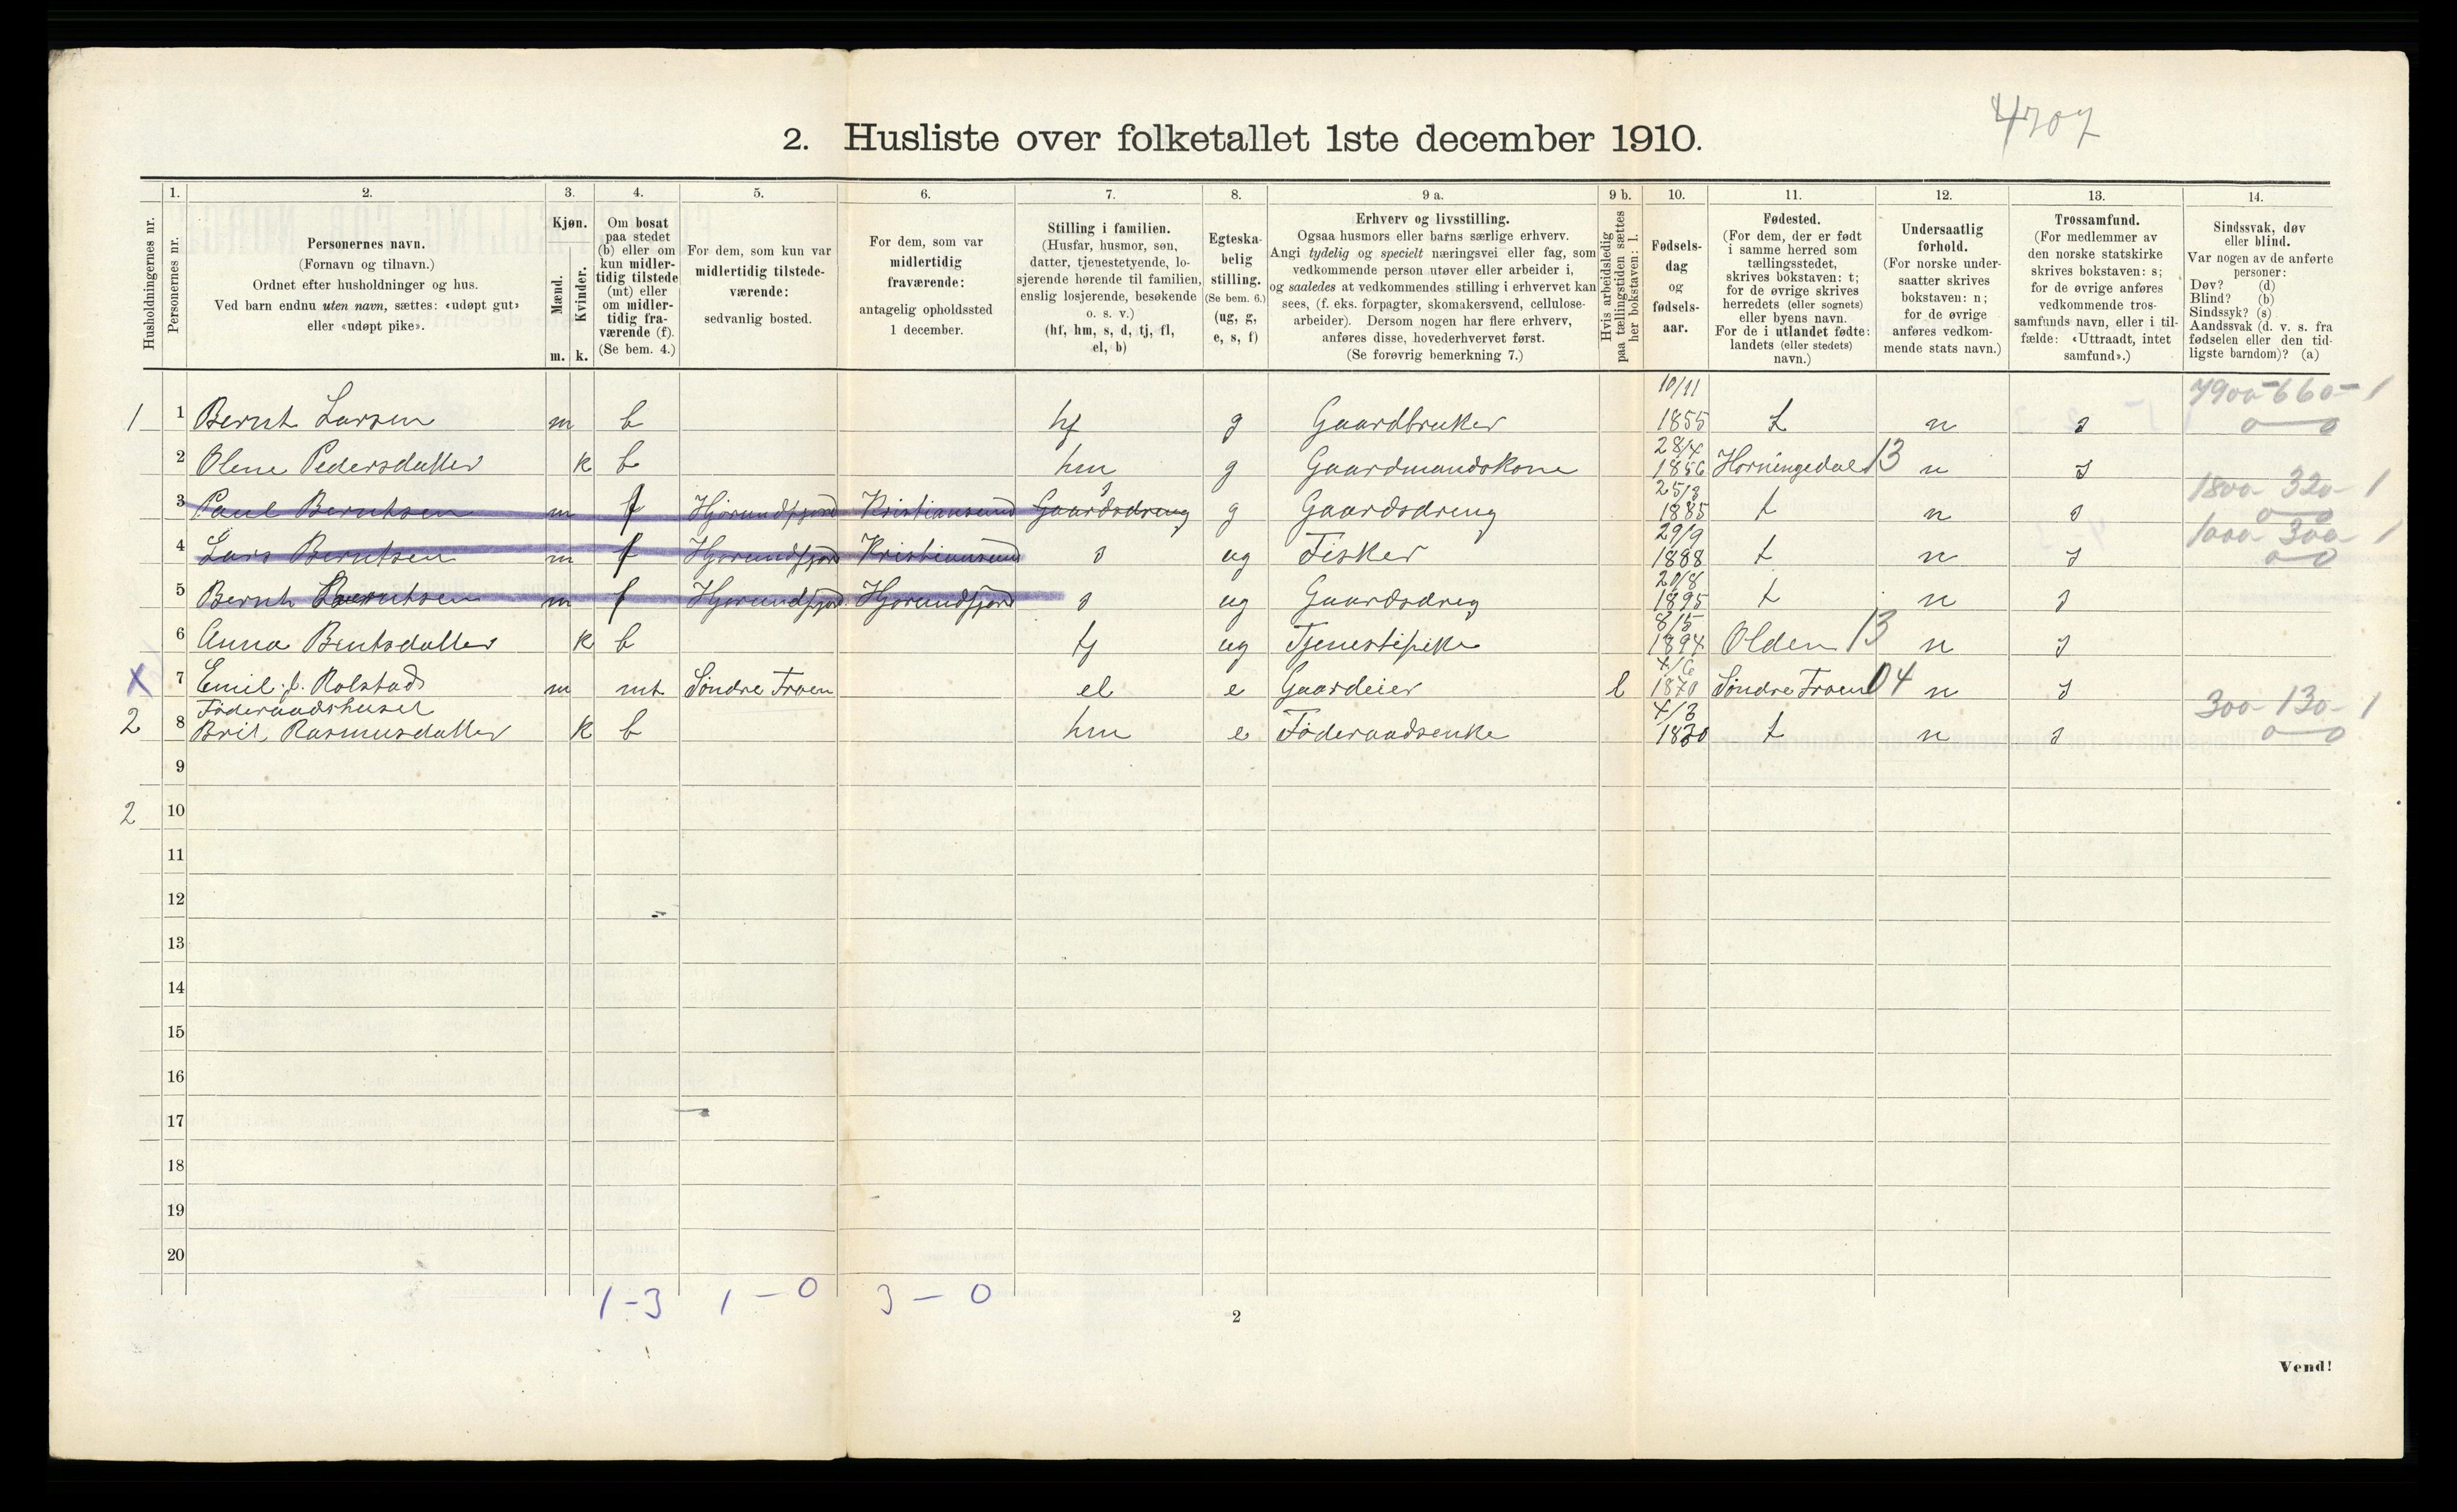 4707
2. Husliste over folketallet 1ste december 1910.
Husholdningernes nr.
1. Personernes nr.
2.
Personernes navn.
(Fornavn og tilnavn.)
Ordnet efter husholdninger og hus.
Ved barn endnu uten navn, sættes: «udøpt gut»
eller «udøpt pike».
3.
Kjøn.
Mænd. Kvinder.
m. k.
4.
Om bosat
paa stedet
(b) eller om
kun midler-
tidig tilstede
(mt) eller
om midler-
tidig fra-
værende (f).
(Se bem. 4.)
5.
For dem, som kun var
midlertidig tilstede-
værende:
sedvanlig bosted.
6.
For dem, som var
midlertidig
fraværende:
antagelig opholdssted
1 december.
7.
Stilling i familien.
(Husfar, husmor, søn,
datter, tjenestetyende, lo-
sjerende hørende til familien,
enslig losjerende, besøkende
o. s. v.)
(hf, hm, s, d, tj, fl,
el, b)
8.
Egteska-
belig
stilling.
(Se bem. 6.)
(ug, g,
e, s, f)
9 a.
Erhverv og livsstilling.
Ogsaa husmors eller barns særlige erhverv.
Angi tydelig og specielt næringsvei eller fag, som
vedkommende person utøver eller arbeider i,
og saaledes at vedkommendes stilling i erhvervet kan
sees, (f. eks. forpagter, skomakersvend, cellulose-
arbeider). Dersom nogen har flere erhverv,
anføres disse, hovederhvervet først.
(Se forøvrig bemerkning 7.)
9 b.
Hvis arbeidsledig
paa tællingstiden sættes
her bokstaven: l.
10.
Fødsels-
dag
og
fødsels-
aar.
11.
Fødested.
(For dem, der er født
i samme herred som
tællingsstedet,
skrives bokstaven: t;
for de øvrige skrives
herredets (eller sognets)
eller byens navn.
For de i utlandet fødte:
landets (eller stedets)
navn.)
12.
Undersaatlig
forhold.
(For norske under-
saatter skrives
bokstaven: n;
for de øvrige
anføres vedkom-
mende stats navn.)
13.
Trossamfund.
(For medlemmer av
den norske statskirke
skrives bokstaven: s;
for de øvrige anføres
vedkommende tros-
samfunds navn, eller i til-
fælde: «Uttraadt, intet
samfund».)
14.
Sindssvak, døv
eller blind.
Var nogen av de anførte
personer:
Døv? (d)
Blind? (b)
Sindssyk? (s)
Aandssvak (d. v. s. fra
fødselen eller den tid-
ligste barndom)? (a)
10/11 7900-660-1
1 1 Bernt Larsen m b hf g Gaardbruker 1855 t n s 0-0
28/4
2 Olene Pedersdatter k b hm g Gaardmandskone 1856 Horningedal 13 n s
25/3 1800-320-1
3 Paul Berntsen m f Hjørundfjord Kristiansund Gaardsdreng s g Gaardsdreng 1885 t n s 0-0
29/9 1000-300-1
4 Lars Berntsen m f Hjørundfjord Kristiansund s ug Fisker 1888 t n s 0-0
20/8
5 Bernt Berntsen m f Hjørundfjord Hjørundfjord s ug Gaardsdreg 1895 t n s
8/5
6 Anna Bentsdatter k b tj ug Tjenestepike 1894 Olden 13 n s
4/6
X 7 Emil J. Rolstad m mt Søndre Froen el e Gaardeier l 1870 Søndre Froen 04 n s
Føderaadshuset 4/3 300-130-1
2 8 Brit Rasmusdatter k b hm e Føderaadsenke 1830 t n s 0-0
9
2 10
11
12
13
14
15
16
17
18
19
20
1-3 1-0 3-0
2
Vend!